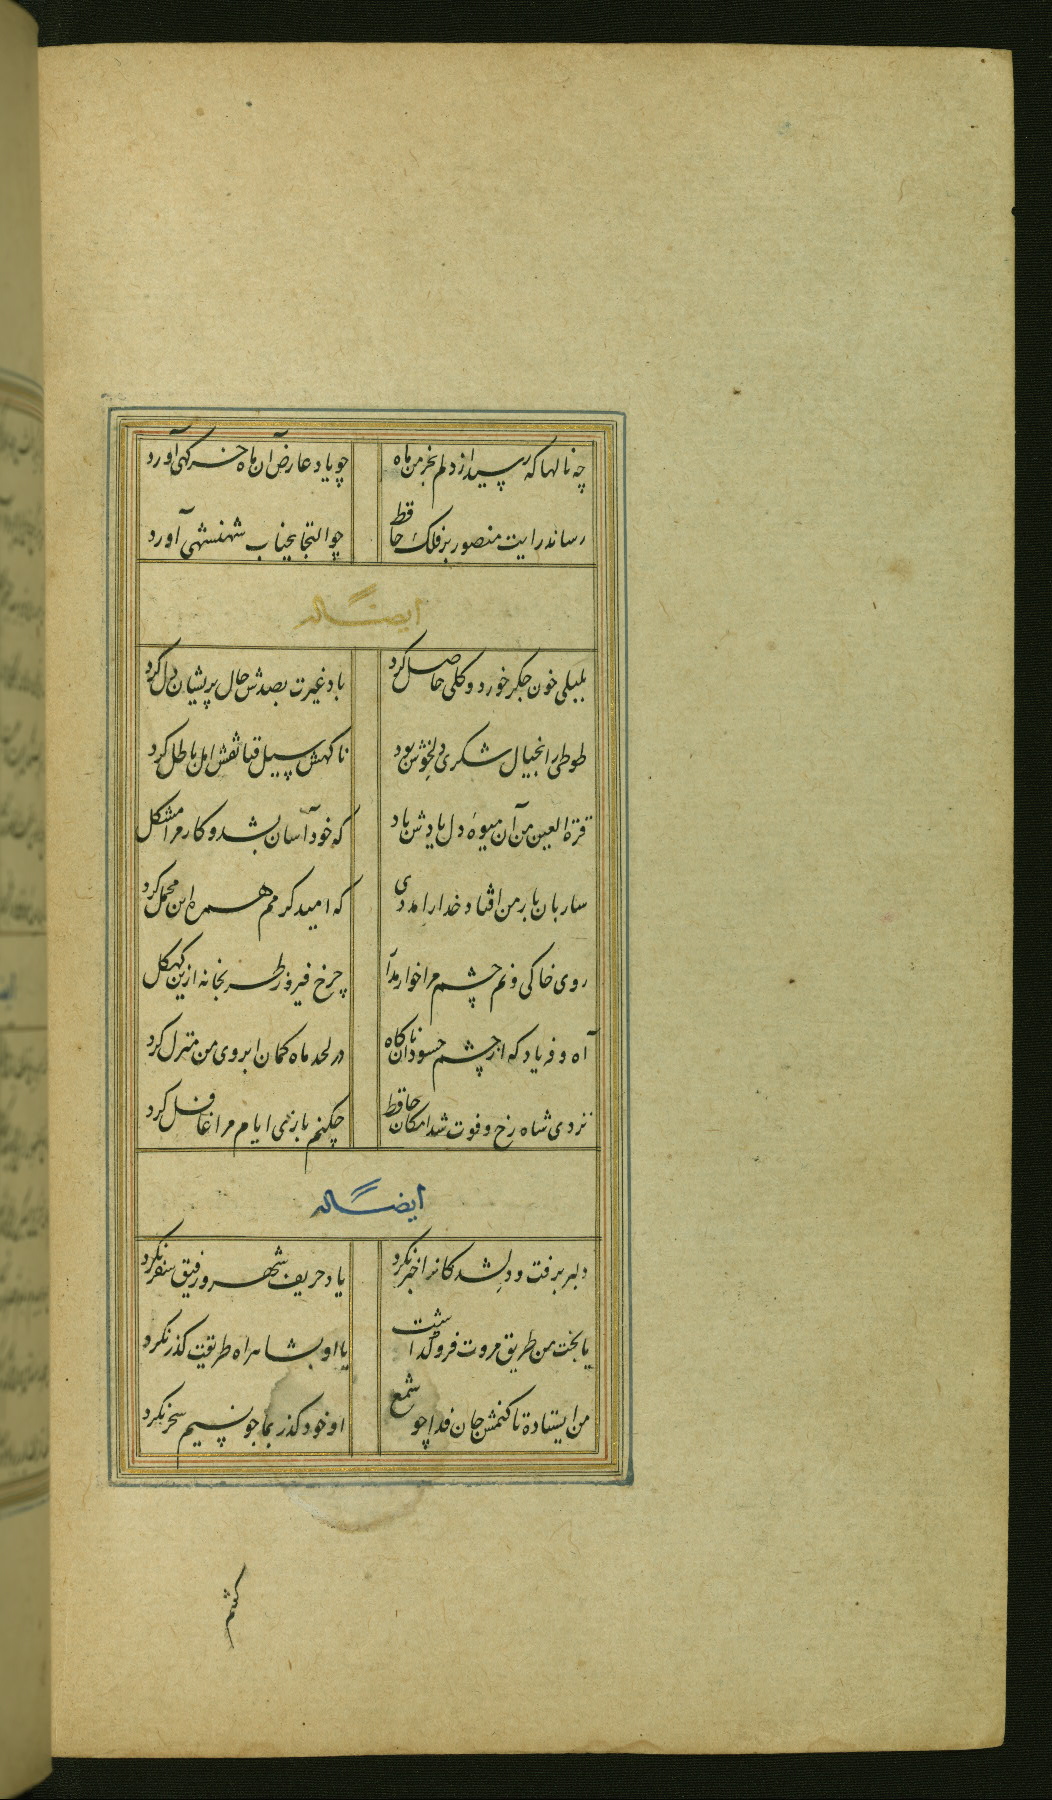 چه نالها که رسید از دلم بخرمن ماه چو یاد عارض آن ماه خرگهی آورد
رساند رایت منصور بر فلک حافظ چو التجا بجناب شهنشهی آورد
ایضاً له
بلبلی خون جکر خورد و کلی حاصل کرد باد غیرت بصدش حال پریشان دل کرد
طوطی را بخیال شکری دلخوش بود ناکهش سیل فنا نقش امل باطل کرد
قرة العین من آن میوه دل یادش باد که خود آسان بشد و کار مرا مشکل
ساربان بار من افتاد خدا را مددی که امید کرمم همره این محمل کرد
روی خاکی و نم چشم مرا خوار مدار چرخ فیروزه طربخانه ازین کهکل
آه و فریاد که از چشم حسودان ناکاه در لحد ماه کمان ابروی من منزل کرد
نزدی شاه رخ و فوت شد امکان حافظ چکنم بازی ایام مرا غافل کرد
ایضاً له
دلبر برفت و دلشدکانرا خبر نکرد یاد حریف شهر و رفیق سفر نکرد
یا بخت من طریق مروت فروکذاشت یا او بشاهراه طریقت کذر نکرد
من ایستاده تا کنمش جان فدا چو شمع او خود کذر بما چو نسیم سحر نکرد
کفتم